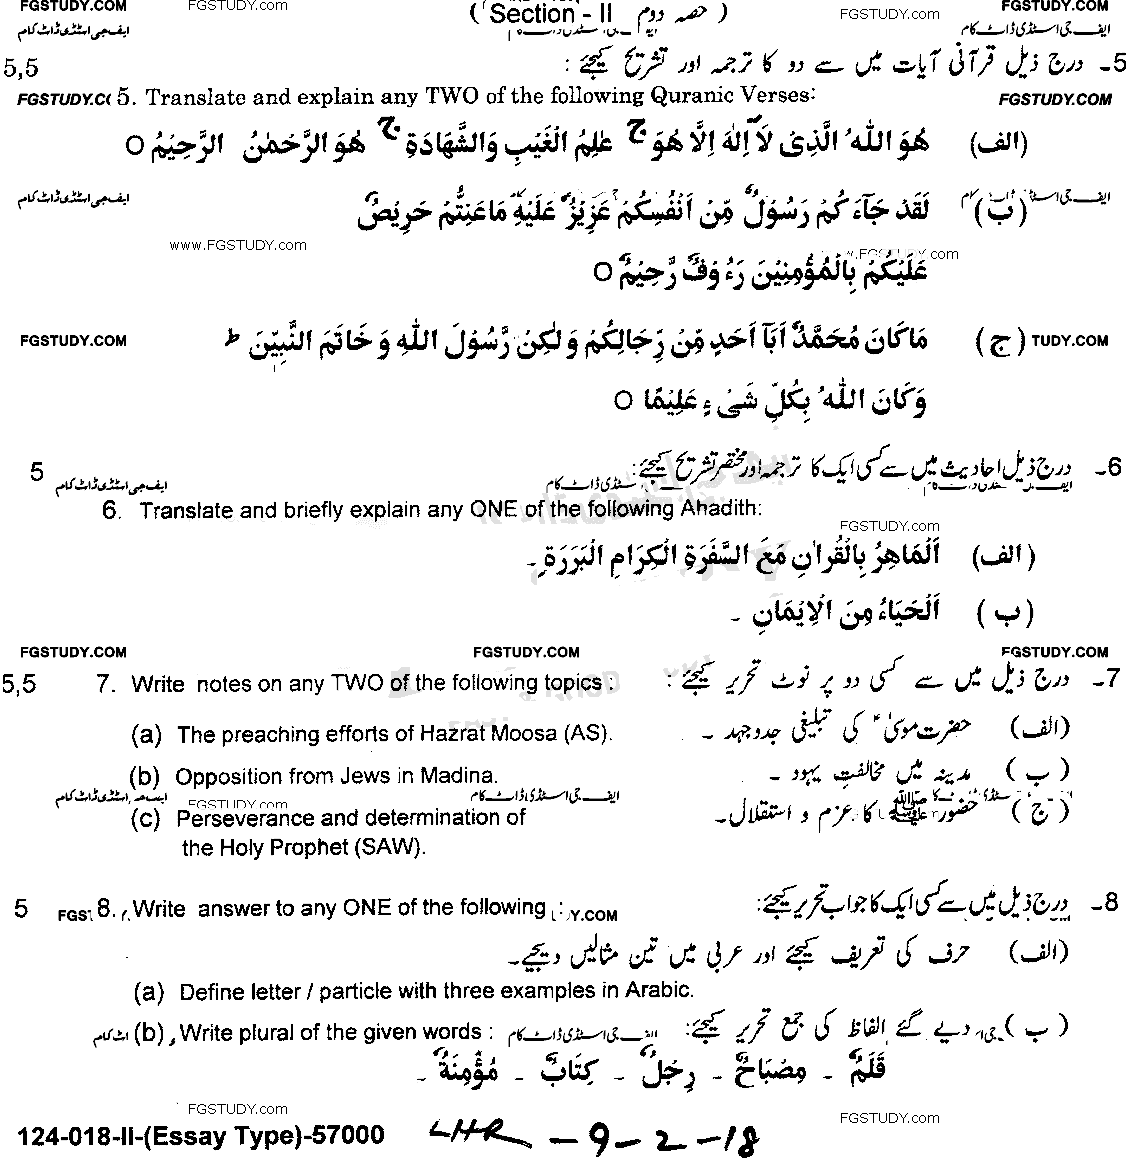 FGSTUDY.COM FGSTUDY.com ( حصہ دوم Section - II ) FGSTUDY.com FGSTUDY.COM
ایف جی اسٹڈی ڈاٹ کام ایف جی اسٹڈی ڈاٹ کام
5,5 5۔ درج ذیل قرآنی آیات میں سے دو کا ترجمہ اور تشریح کیجئے :
FGSTUDY.C 5. Translate and explain any TWO of the following Quranic Verses: FGSTUDY.COM
(الف) هُوَ اللّٰهُ الَّذِىْ لَآ اِلٰهَ اِلَّا هُوَ ج عٰلِمُ الْغَيْبِ وَالشَّهَادَةِ ج هُوَ الرَّحْمٰنُ الرَّحِيْمُ O
ایف جی اسٹڈی ڈاٹ کام (ب) لَقَدْ جَآءَ كُمْ رَسُوْلٌ مِّنْ اَنْفُسِكُمْ عَزِيْزٌ عَلَيْهِ مَاعَنِتُّمْ حَرِيْصٌ ایف جی اسٹڈی ڈاٹ کام
www.FGSTUDY.com
عَلَيْكُمْ بِالْمُؤْمِنِيْنَ رَءُ وْفٌ رَّحِيْمٌ O .FGSTUDY.com
FGSTUDY.COM (ج) مَاكَانَ مُحَمَّدٌ اَبَآ اَحَدٍ مِّنْ رِّجَالِكُمْ وَلٰكِنْ رَّسُوْلَ اللّٰهِ وَ خَاتَمَ النَّبِيّٖنَ ط TUDY.COM
وَكَانَ اللّٰهُ بِكُلِّ شَىْءٍ عَلِيْمًا O
5 6۔ درج ذیل احادیث میں سے کسی ایک کا ترجمہ اور مختصر تشریح کیجئے:
ایف جی اسٹڈی ڈاٹ کام اسٹڈی ڈاٹ کام
6. Translate and briefly explain any ONE of the following Ahadith:
FGSTUDY.com
(الف) اَلْمَاهِرُ بِالْقُرْاٰنِ مَعَ السَّفَرَةِ الْكِرَامِ الْبَرَرَةِ۔
(ب) اَلْحَيَاءُ مِنَ الْاِيْمَانِ ۔
FGSTUDY.COM FGSTUDY.COM FGSTUDY.COM
5,5 7. Write notes on any TWO of the following topics : 7۔ درج ذیل میں سے کسی دو پر نوٹ تحریر کیجئے :
(a) The preaching efforts of Hazrat Moosa (AS). (الف) حضرت موسیٰؑ کی تبلیغی جدوجہد ۔
(b) Opposition from Jews in Madina. (ب) مدینہ میں مخالفتِ یہود ۔
ایف جی اسٹڈی ڈاٹ کام FGSTUDY.com ایف جی اسٹڈی ڈاٹ کام
(c) Perseverance and determination of (ج) حضور ﷺ کا عزم و استقلال۔
the Holy Prophet (SAW).
5 8. Write answer to any ONE of the following : Y.COM 8۔ درج ذیل میں سے کسی ایک کا جواب تحریر کیجئے:
(الف) حرف کی تعریف کیجئے اور عربی میں تین مثالیں دیجیے۔
(a) Define letter / particle with three examples in Arabic.
(b) Write plural of the given words : ایف جی اسٹڈی ڈاٹ کام (ب) دیے گئے الفاظ کی جمع تحریر کیجئے:
قَلَمٌ ۔ مِصْبَاحٌ ۔ رِجْلٌ ۔ كِتَابٌ ۔ مُؤْمِنَةٌ ۔
FGSTUDY.com FGSTUDY.com
124-018-II-(Essay Type)-57000 LHR - 9 - 2 - 18